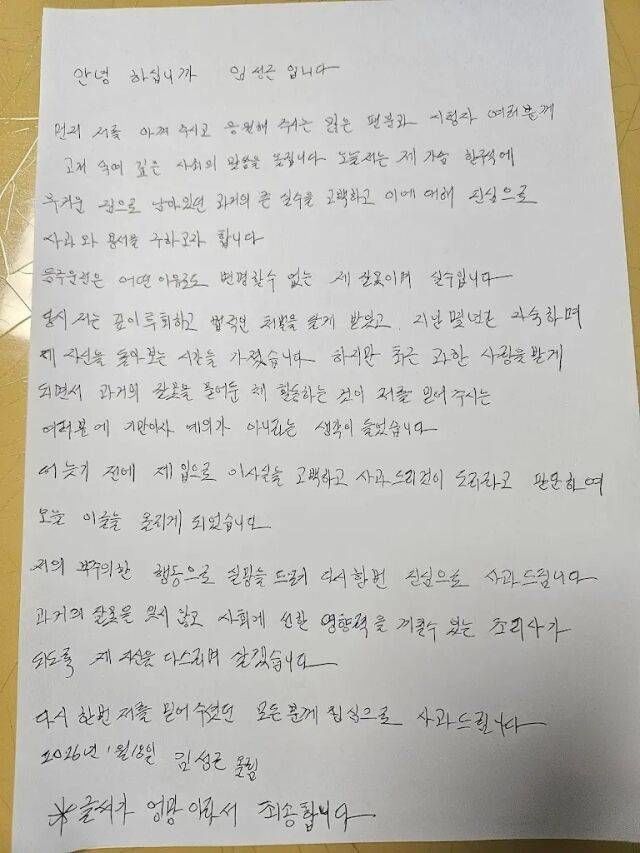 안녕 하십니까 임성근 입니다
먼저 저를 아껴 주시고 응원해 주시는 많은 팬분과 시청자 여러분께
고개 숙여 깊은 사죄의 말씀을 올립니다 오늘 저는 제 가슴 한구석에
무거운 짐으로 남아있던 과거의 큰 실수를 고백하고 이에 대해 진심으로
사과와 용서를 구하고자 합니다
음주운전은 어떤 이유로도 변명할수 없는 제 잘못이며 실수입니다
당시 저는 깊이 후회하고 법적인 처벌을 달게 받았고, 지난 몇년간 자숙하며
제 자신을 돌아보는 시간을 가졌습니다 하지만 최근 과한 사랑을 받게
되면서 과거의 잘못을 묻어둔 채 활동하는 것이 저를 믿어 주시는
여러분에 기만이자 예의가 아니라는 생각이 들었습니다
더 늦기 전에 제 입으로 이사실을 고백하고 사과드리는것이 도리라고 판단하여
오늘 이글을 올리게 되었습니다
저의 부주의한 행동으로 실망을 드려 다시한번 진심으로 사과드립니다
과거의 잘못을 잊지 않고 사회에 선한 영향력을 끼칠수 있는 조리사가
되도록 제 자신을 다스리며 살겠습니다
다시 한번 저를 믿어 주셨던 모든분께 진심으로 사과드립니다
2026년 1월18일 임성근 올림
※글씨가 엉망 이라서 죄송합니다